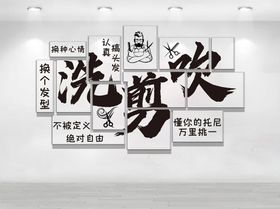 换种心情
认真
搞头发
换个发型
洗剪吹
不被定义
绝对自由
懂你的托尼
万里挑一